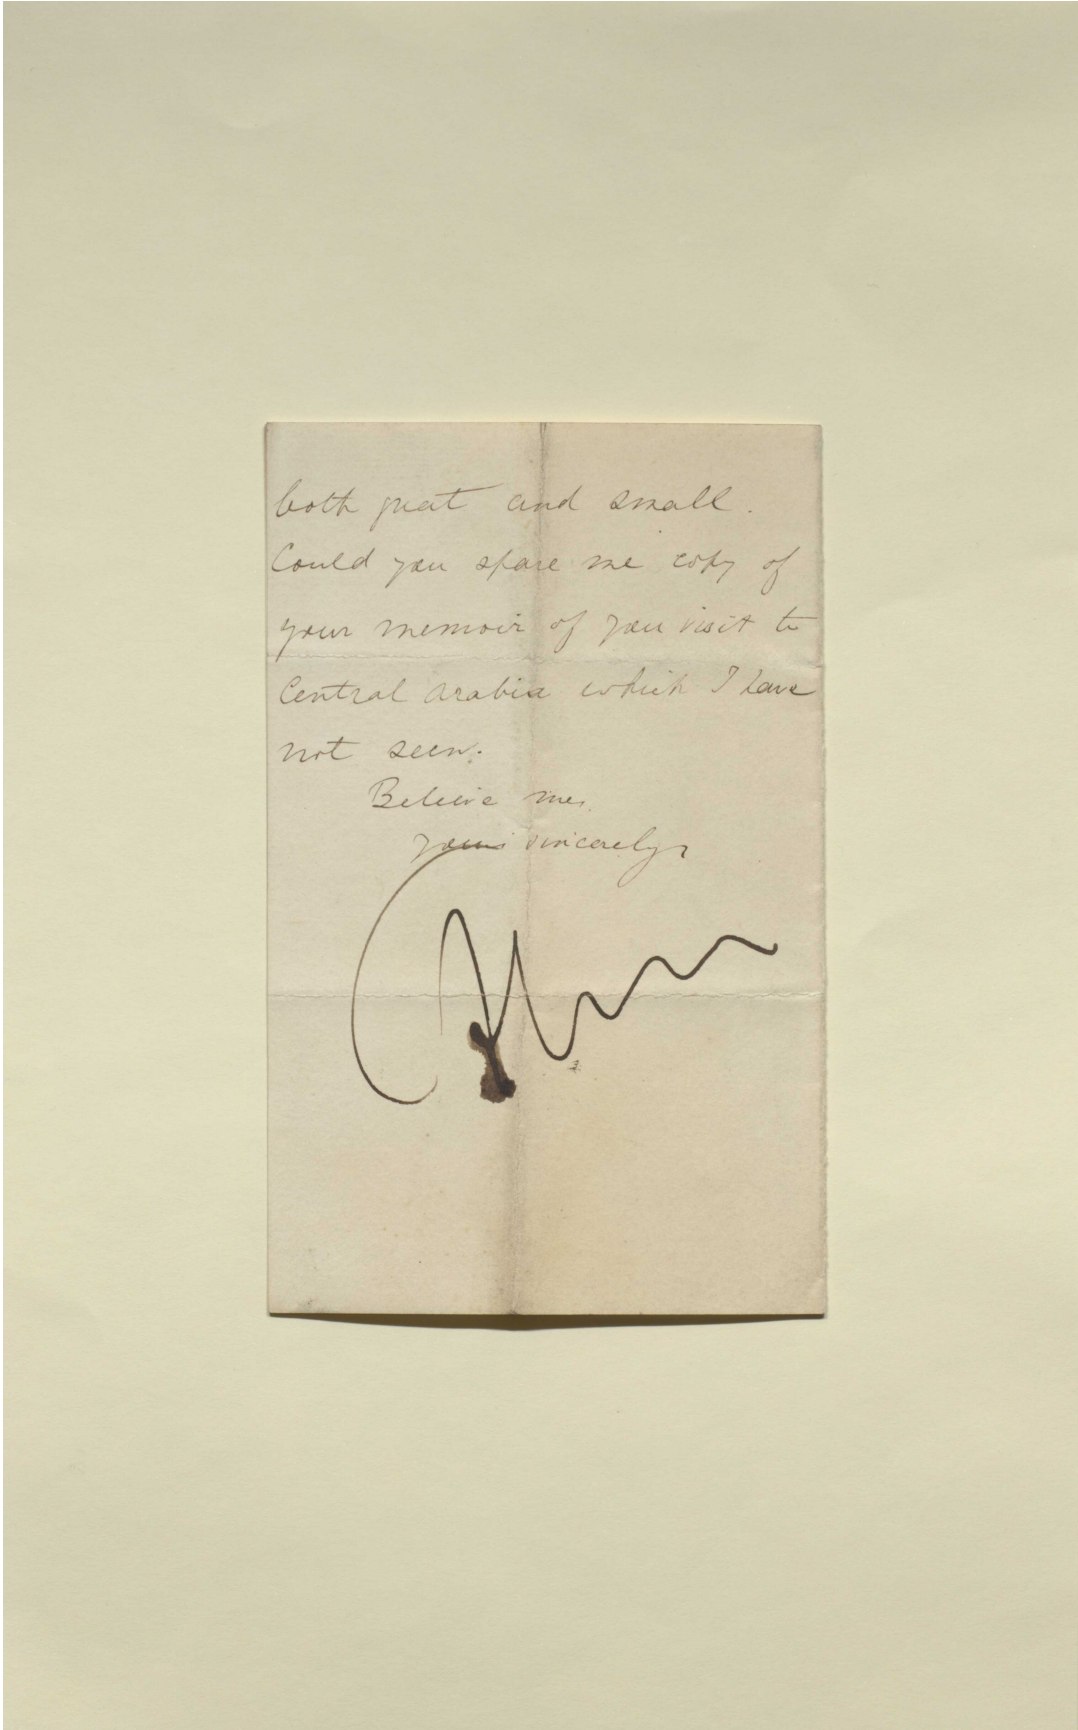 both great and small.
Could you spare me copy of
your memoir of you visit to
Central Arabia which I have
not seen.
Believe me,
yours sincerely